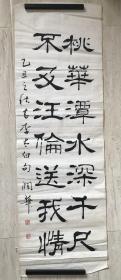 桃華潭水深千尺
不及汪倫送我情
乙丑之秋書李太白句